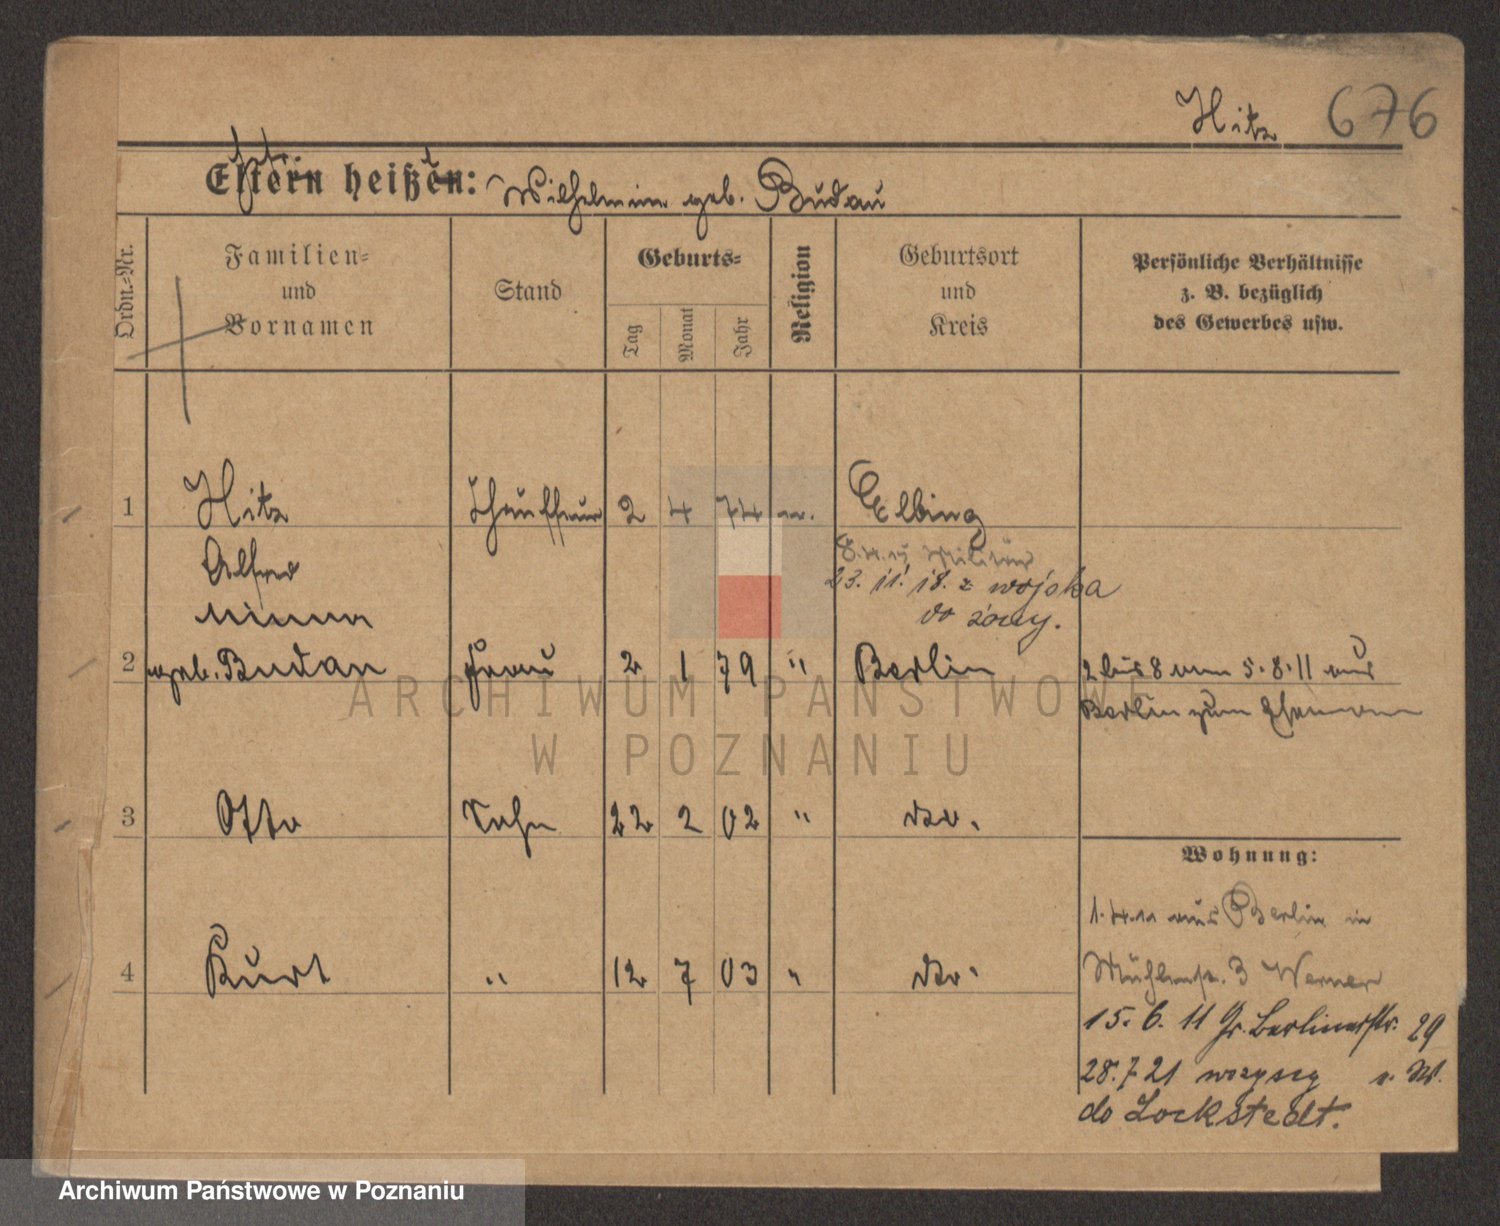 Hitz 676
Eltern heißen: Wilhelmine geb. Budau
Ordn.-Nr.
Familien-
und
Vornamen
Stand
Geburts-
Tag
Monat
Jahr
Religion
Geburtsort
und
Kreis
Persönliche Verhältnisse
z. B. bezüglich
des Gewerbes usw.
1 Hitz Chauffeur 2 4 74 ev. Elbing
Alfred
8.4.15 Militär
23. 11. 18. z wojska
do żony.
Minna
2 geb. Budau Frau 2 1 79 " Berlin 2 bis 8 vom 5.8.11 aus
Berlin zum Ehemann
3 Otto Sohn 22 2 02 " do.
Wohnung:
1.4.11 aus Berlin in
4 Kurt " 12 7 03 " do.
Mühlenstr. 3 Werner
15. 6. 11 Gr. Berlinerstr. 29
28.7.21 wszyscy
do Lockstedt.
ARCHIWUM PAŃSTWOWE
W POZNANIU
Archiwum Państwowe w Poznaniu